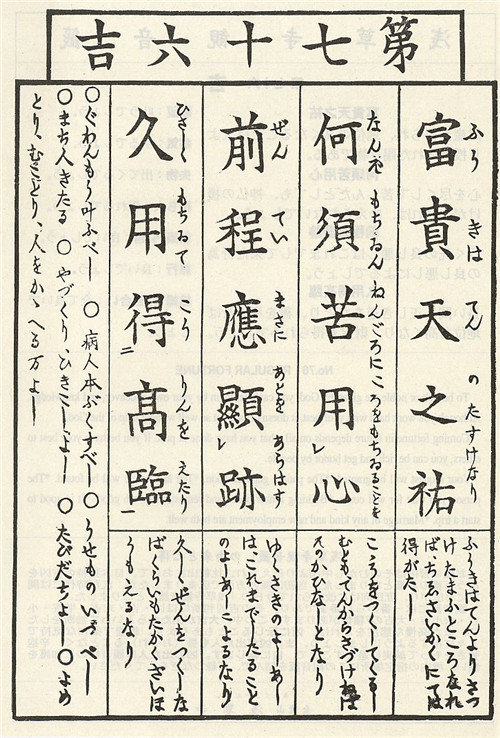 第七十六吉
富貴天之祐
ふうきはてんのたすけなり
ふうきはてんよりさづ
けたまふところなれ
ばちゑざいくにては
得がたし
何須苦用心
なんぞもちゐんねんごろにこゝろをもちゐることを
こゝろをつくしてくるし
むともてんからさづけねば
そのかひなしとなり
前程應顯跡
ぜんていまさにあとをあらはす
ゆくさきのよしあし
はこれまでしたること
のしあとによるなり
久用得高臨
ひさしくもちゐてこうりんをえたり
〇ぐわんもう叶ふべし 〇病人本ぶくすべし 〇うせものいづべし
〇まち人きたる 〇やづくりひきこしよし 〇たびだちよし 〇よめ
とりむことり人をかゝへる万よし